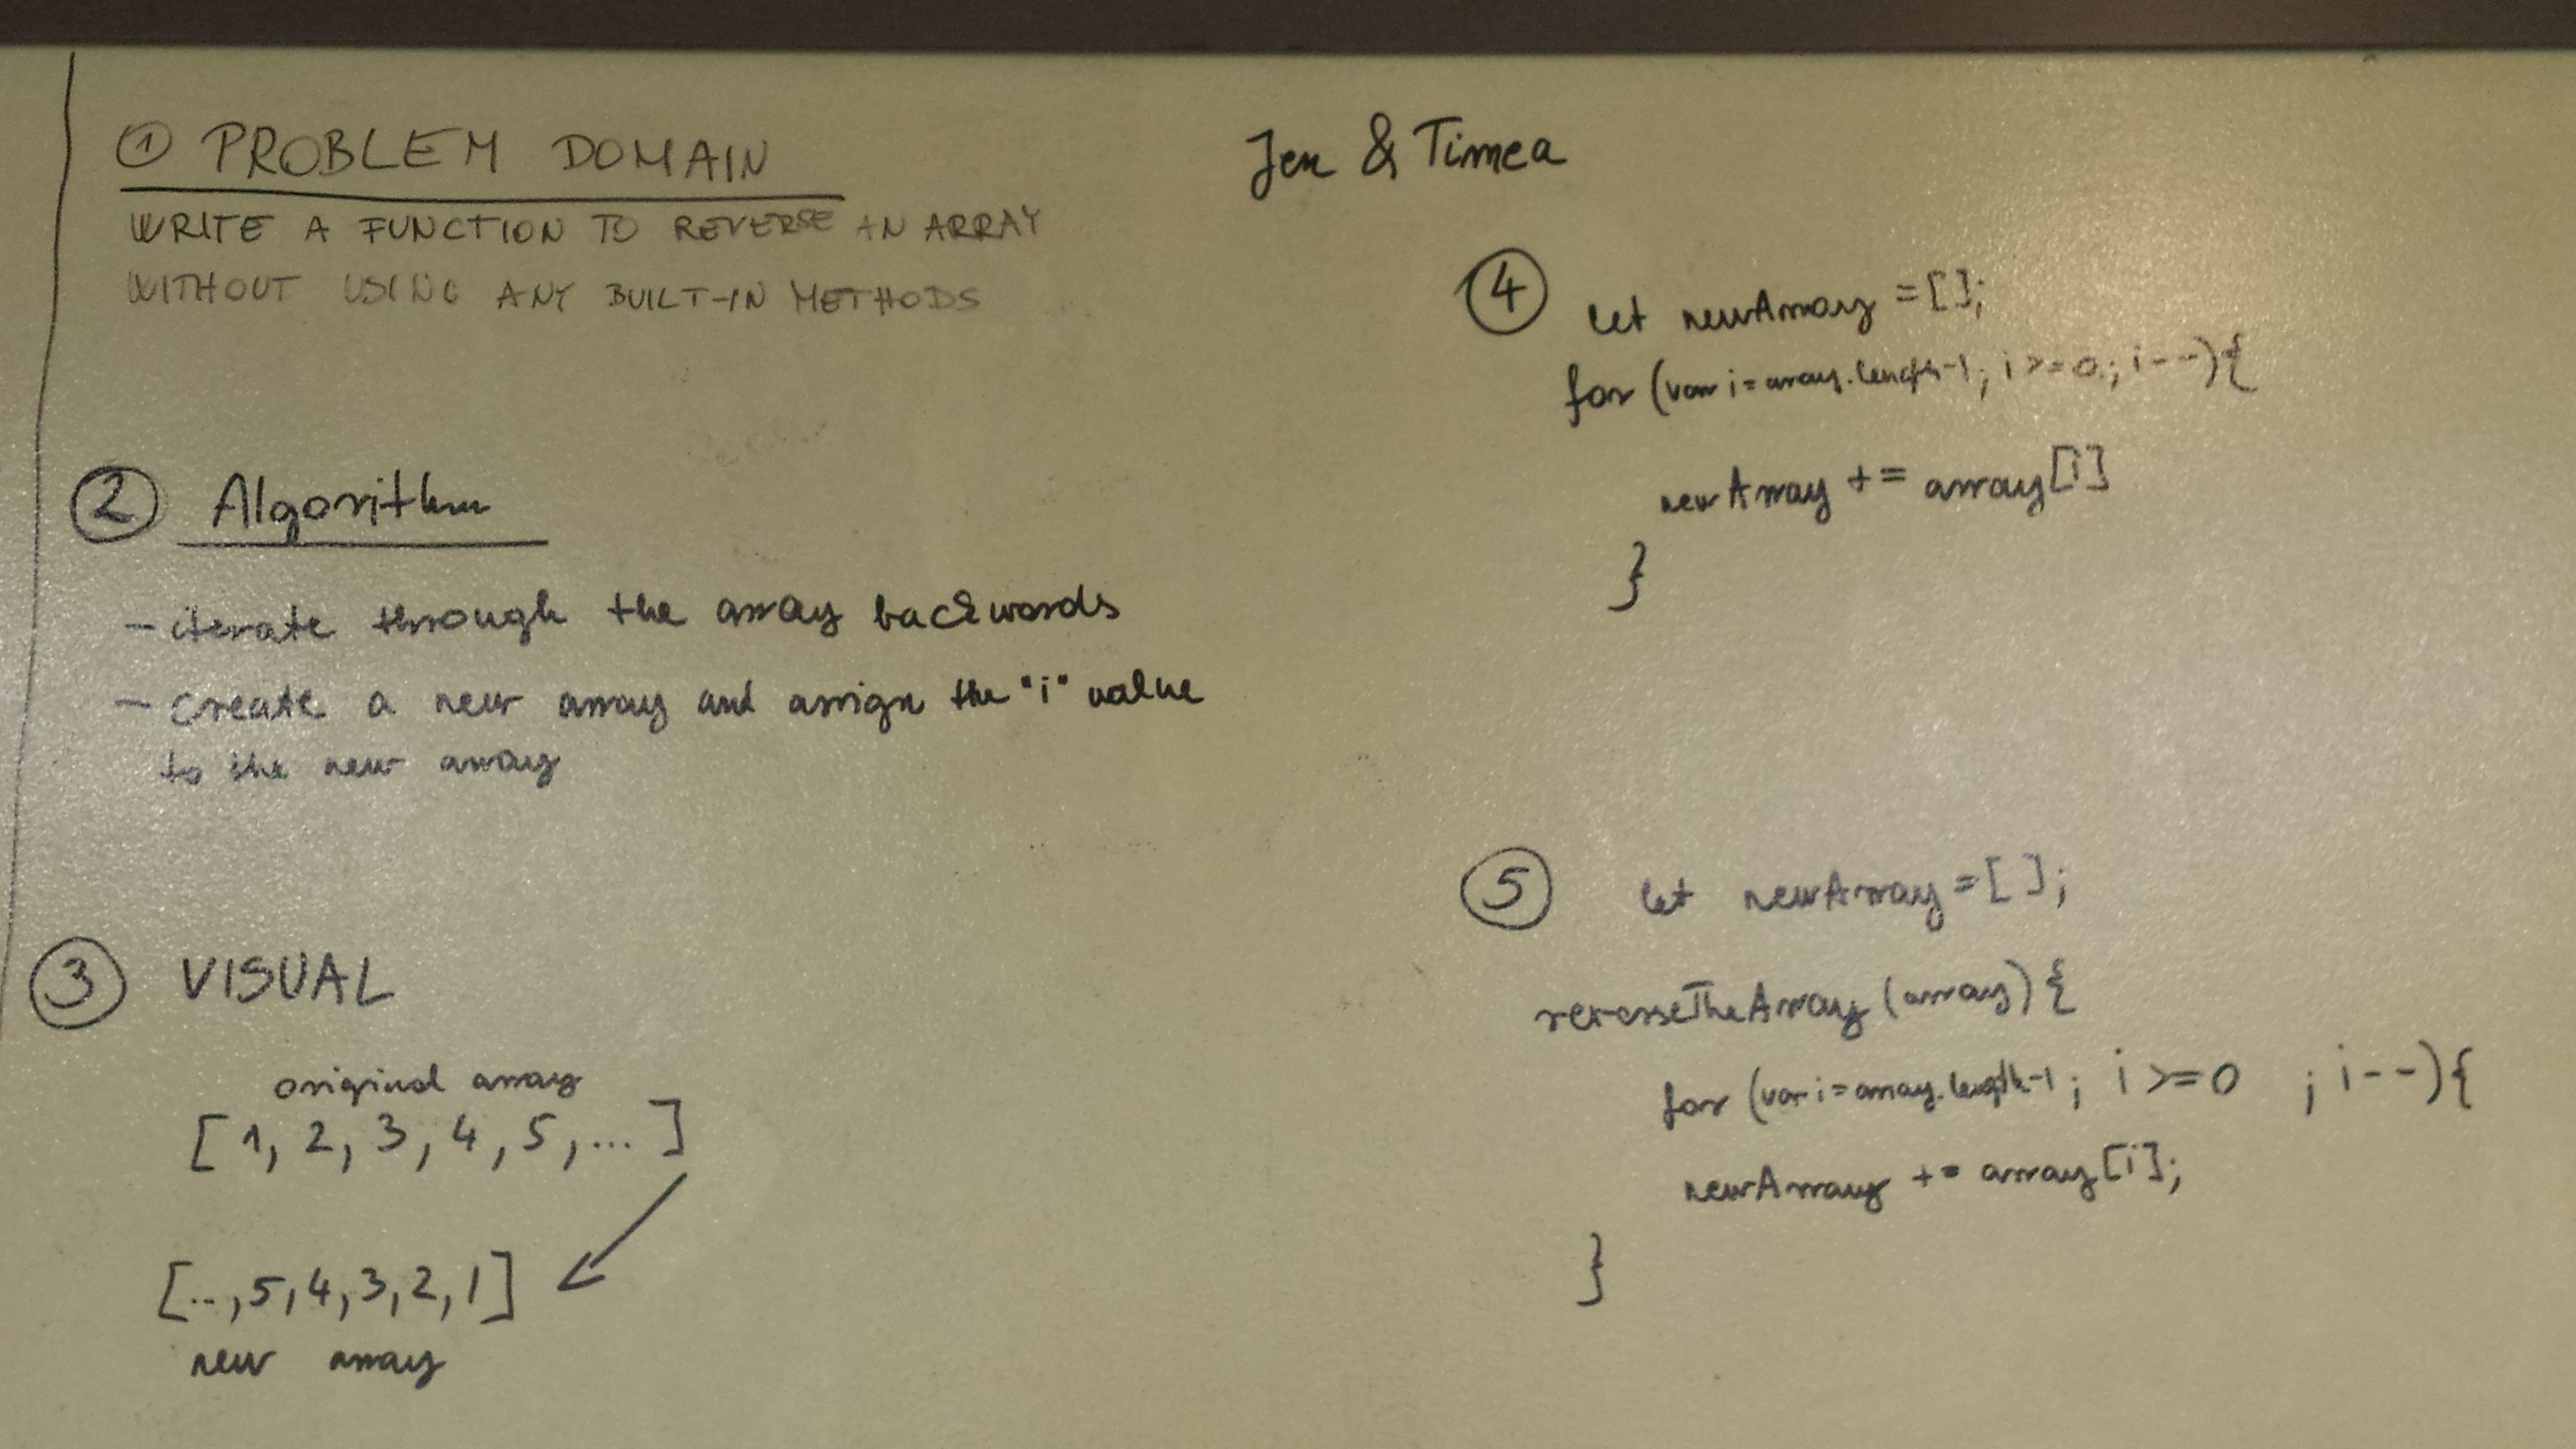 ① PROBLEM DOMAIN
WRITE A FUNCTION TO REVERSE AN ARRAY
WITHOUT USING ANY BUILT-IN METHODS
② Algorithm
- iterate through the array backwords
- create a new array and assign the "i" value
to the new array
③ VISUAL
original array
[ 1, 2, 3, 4, 5, ... ]
[.., 5, 4, 3, 2, 1 ]
new array
Jen & Timea
④ let newArray = [ ];
for (var i = array.length-1; i >= 0; i--){
newArray += array[i]
}
⑤ let newArray = [ ];
reverseTheArray (array) {
for (var i = array.length-1; i >= 0 ; i--){
newArray += array[i];
}